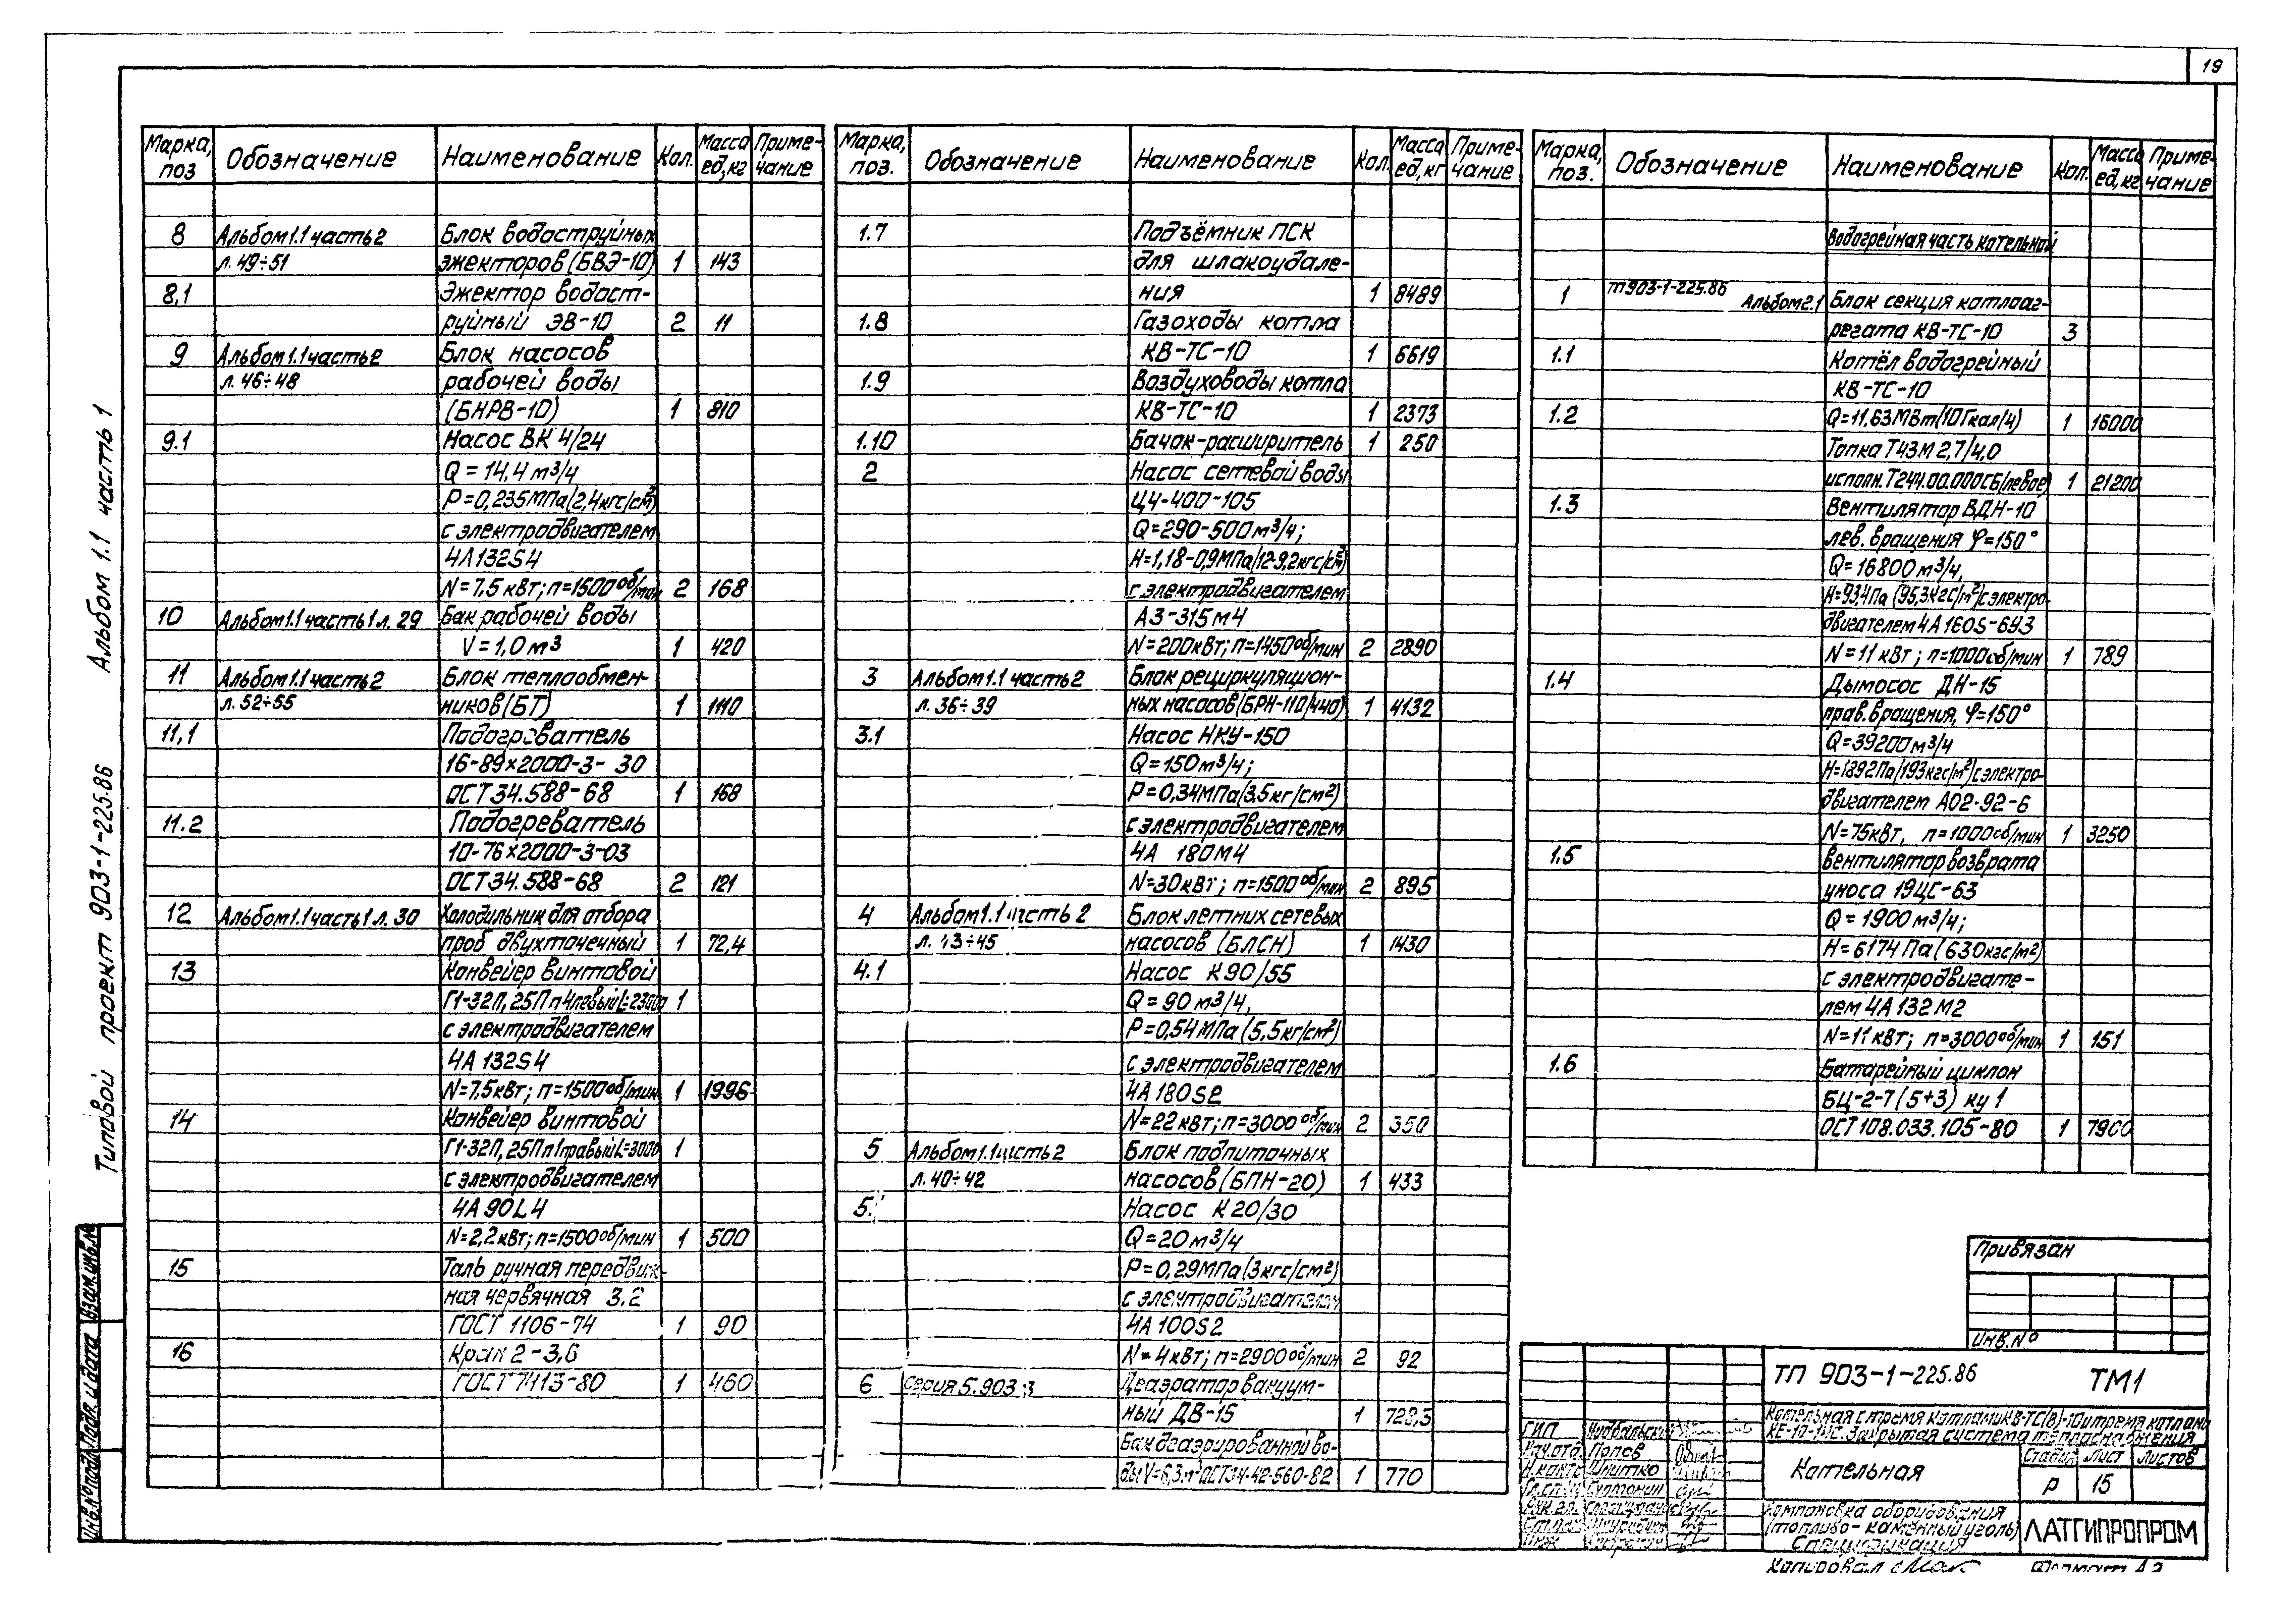 19
Марка, поз Обозначение Наименование Кол. Масса ед,кг Приме-чание
8 Альбом 1.1 часть 2 Блок водоструйных
л. 49÷51 эжекторов (БВЭ-10) 1 143
8,1 Эжектор водост-
руйный ЭВ-10 2 11
9 Альбом 1.1 часть 2 Блок насосов
л. 46÷48 рабочей воды
(БНРВ-10) 1 810
9.1 Насос ВК 4/24
Q = 14,4 м³/ч
Р=0,235МПа(2,4кгс/см²)
с электродвигателем
4А132S4
N=7,5 кВт; п=1500 об/мин 2 168
10 Альбом 1.1 часть 1 л. 29 Бак рабочей воды
V = 1,0 м³ 1 420
11 Альбом 1.1 часть 2 Блок теплообмен-
л. 52÷55 ников (БТ) 1 1110
11,1 Подогреватель
16-89×2000-3-30
ОСТ 34.588-68 1 168
11.2 Подогреватель
10-76×2000-3-03
ОСТ 34.588-68 2 121
12 Альбом 1.1 часть 1 л. 30 Холодильник для отбора
проб двухточечный 1 72,4
13 Конвейер винтовой
Г1-32П, 25Пп4левый L=23000 1
с электродвигателем
4А 132S4
N=7,5кВт; п=1500об/мин 1 1996
14 Конвейер винтовой
Г1-32П, 25Пп1правый L=3000 1
с электродвигателем
4А 90L4
N=2,2 кВт; п=1500 об/мин 1 500
15 Таль ручная передвиж-
ная червячная 3.2
ГОСТ 1106-74 1 90
16 Кран 2-3,6
ГОСТ 7413-80 1 460
Марка, поз. Обозначение Наименование Кол. Масса ед,кг Приме-чание
1.7 Подъёмник ПСК
для шлакоудале-
ния 1 8489
1.8 Газоходы котла
КВ-ТС-10 1 6619
1.9 Воздуховоды котла
КВ-ТС-10 1 2373
1.10 Бачок-расширитель 1 250
2 Насос сетевой воды
ЦН-400-105
Q=290-500 м³/ч;
Н=1,18-0,9МПа(12-9,2кгс/см²)
с электродвигателем
А3-315М4
N=200кВт; п=1450 об/мин 2 2890
3 Альбом 1.1 часть 2 Блок рециркуляцион-
л. 36÷39 ных насосов (БРН-110/440) 1 4132
3.1 Насос НКУ-150
Q=150м³/ч;
Р=0,34МПа(3.5кг/см²)
с электродвигателем
4А 180М4
N=30кВт; п=1500 об/мин 2 895
4 Альбом 1.1 часть 2 Блок летних сетевых
л. 43÷45 насосов (БЛСН) 1 1430
4.1 Насос К 90/55
Q = 90 м³/ч,
Р=0,54МПа (5,5кг/см²)
с электродвигателем
4А 180S2
N=22 кВт; п=3000 об/мин 2 350
5 Альбом 1.1 часть 2 Блок подпиточных
л. 40÷42 насосов (БПН-20) 1 433
5. Насос К 20/30
Q=20м³/ч
Р=0,29МПа(3кгс/см²)
с электродвигателем
4А 100S2
N=4 кВт; п=2900 об/мин 2 92
6 Серия 5.903 Деаэратор вакуум-
ный ДВ-15 1
Бак деаэрированной во-
ды V=6,3м³ ОСТ34-42-560-82 1 770
Марка, поз. Обозначение Наименование Кол. Масса ед,кг Приме-чание
Водогрейная часть котельной
1 тп903-1-225.86 Альбом 2.1 Блок секция котлоаг-
регата КВ-ТС-10 3
1.1 Котёл водогрейный
КВ-ТС-10
1.2 Q=11,63МВт(10Гкал/ч) 1 16000
Топка ТЧЗМ 2,7/4,0
исполн. Т244.00.000СБ(левое) 1 21200
1.3 Вентилятор ВДН-10
лев. вращения φ=150°
Q=16800м³/ч,
Н=934Па (95,3кгс/м²) с электро-
двигателем 4А160S-6У3
N=11 кВт; п=1000об/мин 1 789
1.4 Дымосос ДН-15
прав. вращения, φ=150°
Q=39200м³/ч
Н=1892Па(193кгс/м²) с электро-
двигателем АО2-92-6
N=75кВт, п=1000об/мин 1 3250
1.5 Вентилятор возврата
уноса 19ЦС-63
Q=1900м³/ч;
Н=6174 Па(630кгс/м²)
с электродвигате-
лем 4А 132 М2
N=11 кВт; п=3000об/мин 1 151
1.6 Батарейный циклон
БЦ-2-7(5+3) ку 1
ОСТ 108.033.105-80 1 7900
Типовой проект 903-1-225.86 Альбом 1.1 часть 1
Инв.№подл. Подп. и дата Взам.инв.№
Привязан
Инв.№
ТП 903-1-225.86 ТМ1
Котельная с тремя котлами КВ-ТС(В)-10 и тремя котлами
КЕ-10-14С. Закрытая система теплоснабжения
ГИП
Нач.отд. Попов
Н.контр. Шнитко
Котельная
Стадия Лист Листов
Р 15
Компоновка оборудования
(топливо-каменный уголь)
Спецификация
ЛАТГИПРОПРОМ
Копировал
Формат А2